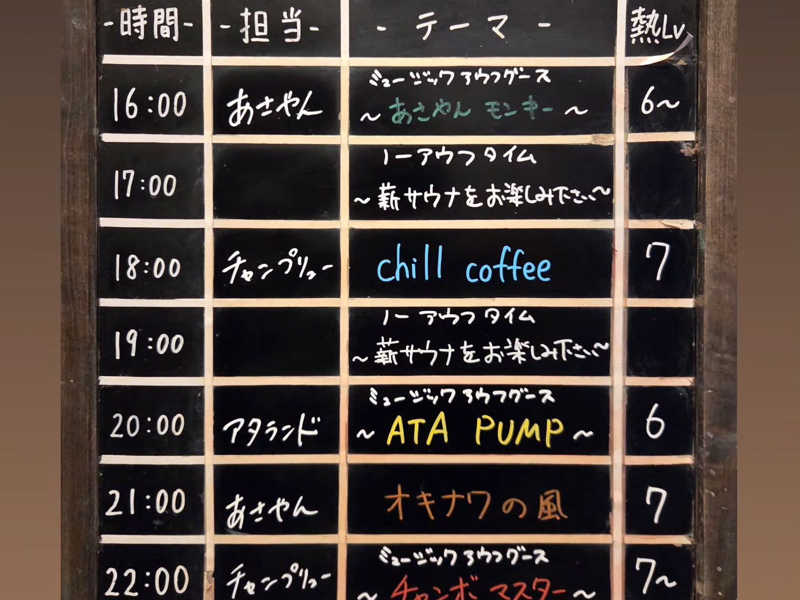 -時間- -担当- - テーマ - 熱Lv
ミュージックアウフグース
16:00 あさやん ～ あさやん モンキー ～ 6～
ノーアウフタイム
17:00 ～薪サウナをお楽しみ下さい～
18:00 チャンプリュー chill coffee 7
ノーアウフタイム
19:00 ～薪サウナをお楽しみ下さい～
ミュージックアウフグース
20:00 アタランド ～ ATA PUMP ～ 6
21:00 あさやん オキナワの風 7
ミュージックアウフグース
22:00 チャンプリュー ～ チャンボ マスター ～ 7～